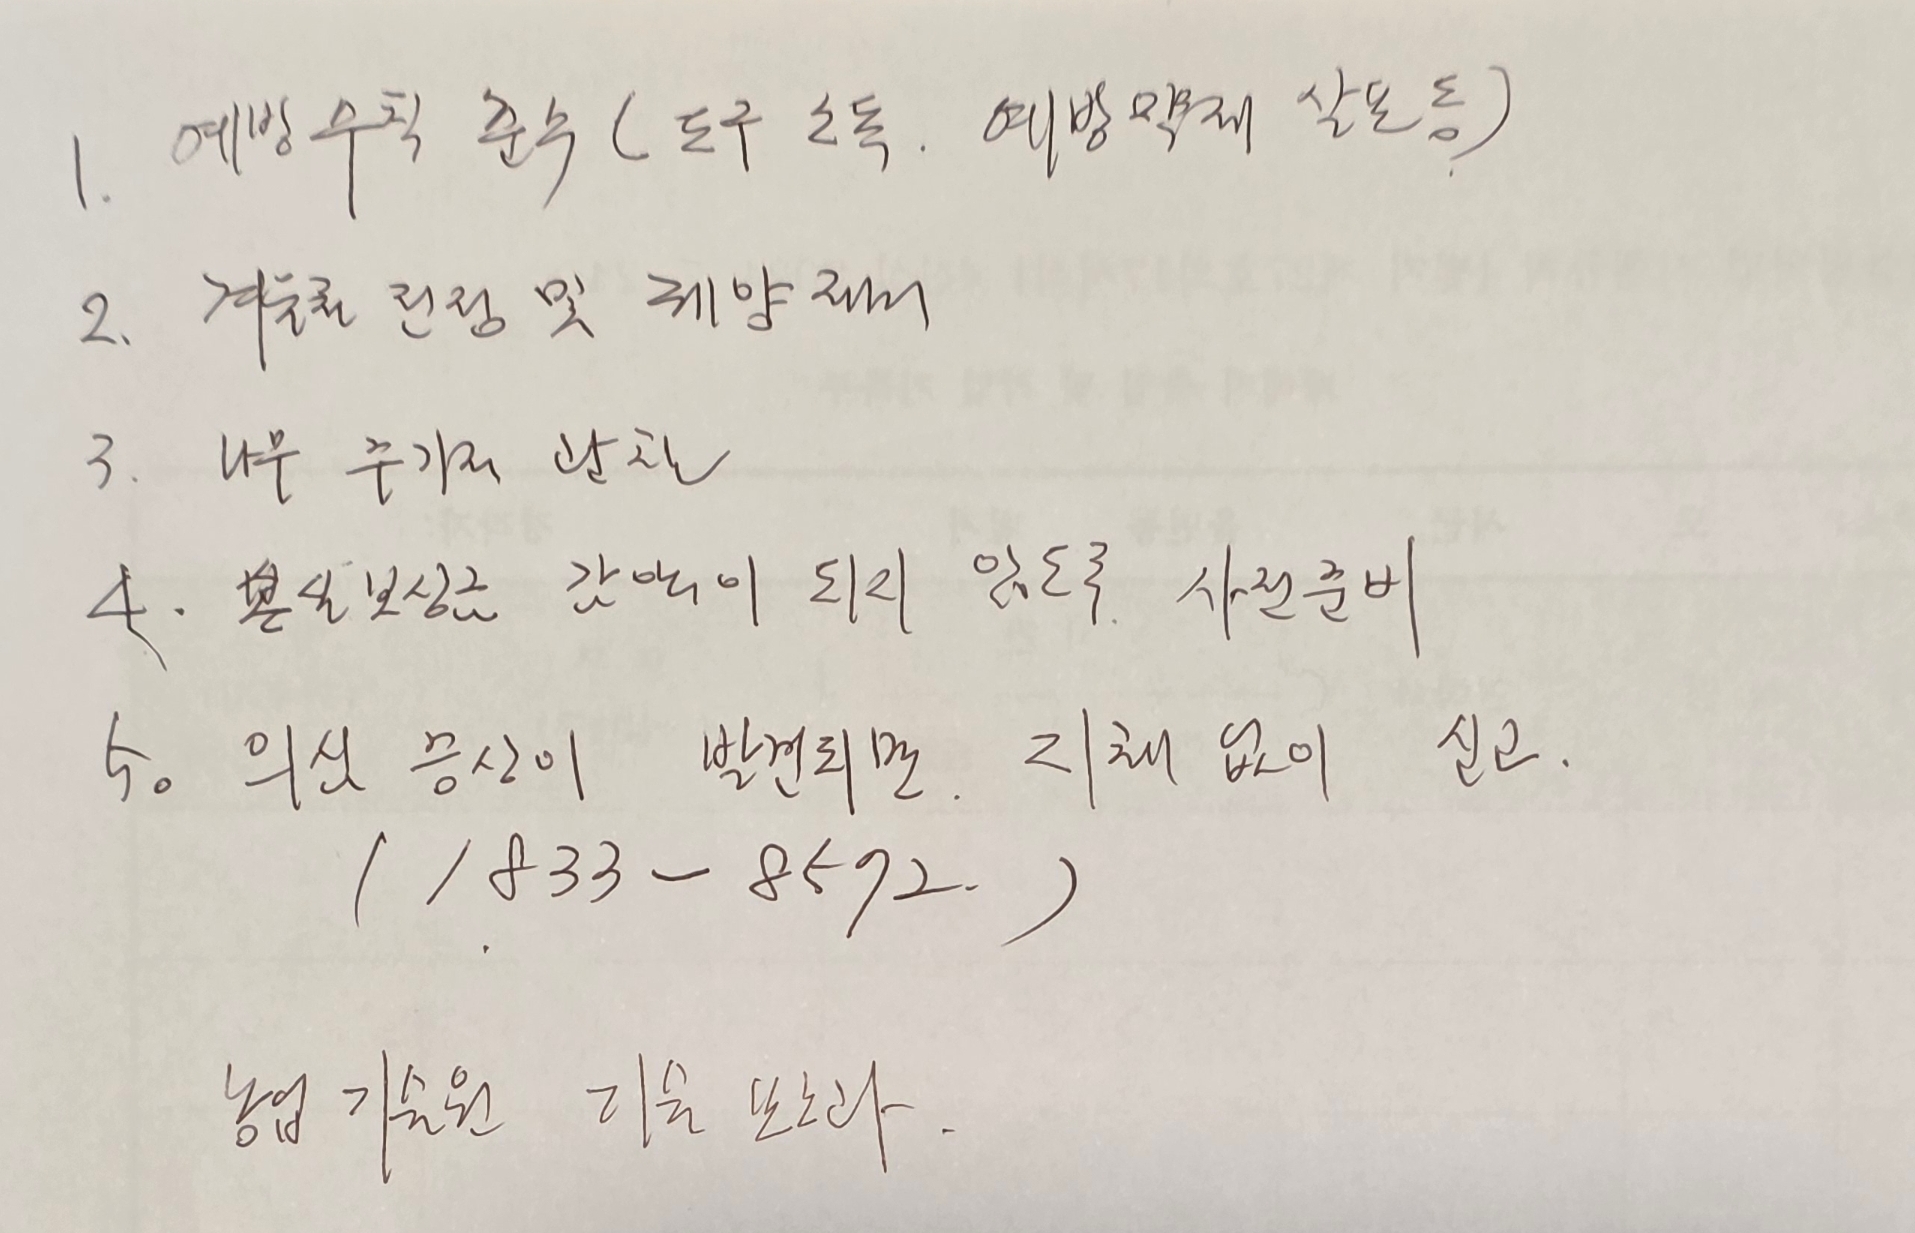 1. 예방수칙 준수 ( 도구 소독. 예방약제 살포 등)
2. 겨울철 전정 및 궤양 제거
3. 나무 주가지
4. 손실보상금 감액이 되지 않도록 사전준비
5. 의심 증상이 발견되면. 지체 없이 신고.
( 1833-8572. )
농업기술원 기술보급과.